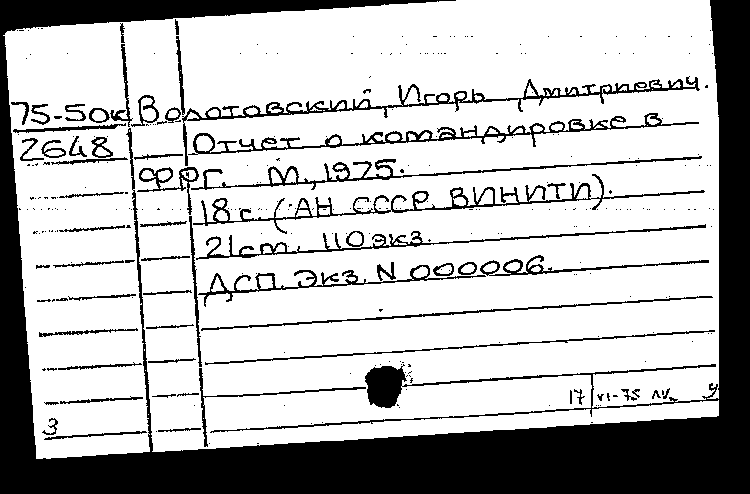 75-50к Волотовский, Игорь Дмитриевич.
2648 Отчет о командировке в
ФРГ. М., 1975.
18 с. (АН СССР. ВИНИТИ).
21 cm. 110 экз.
ДСП. Экз. N 000006.
17 VI-75
3